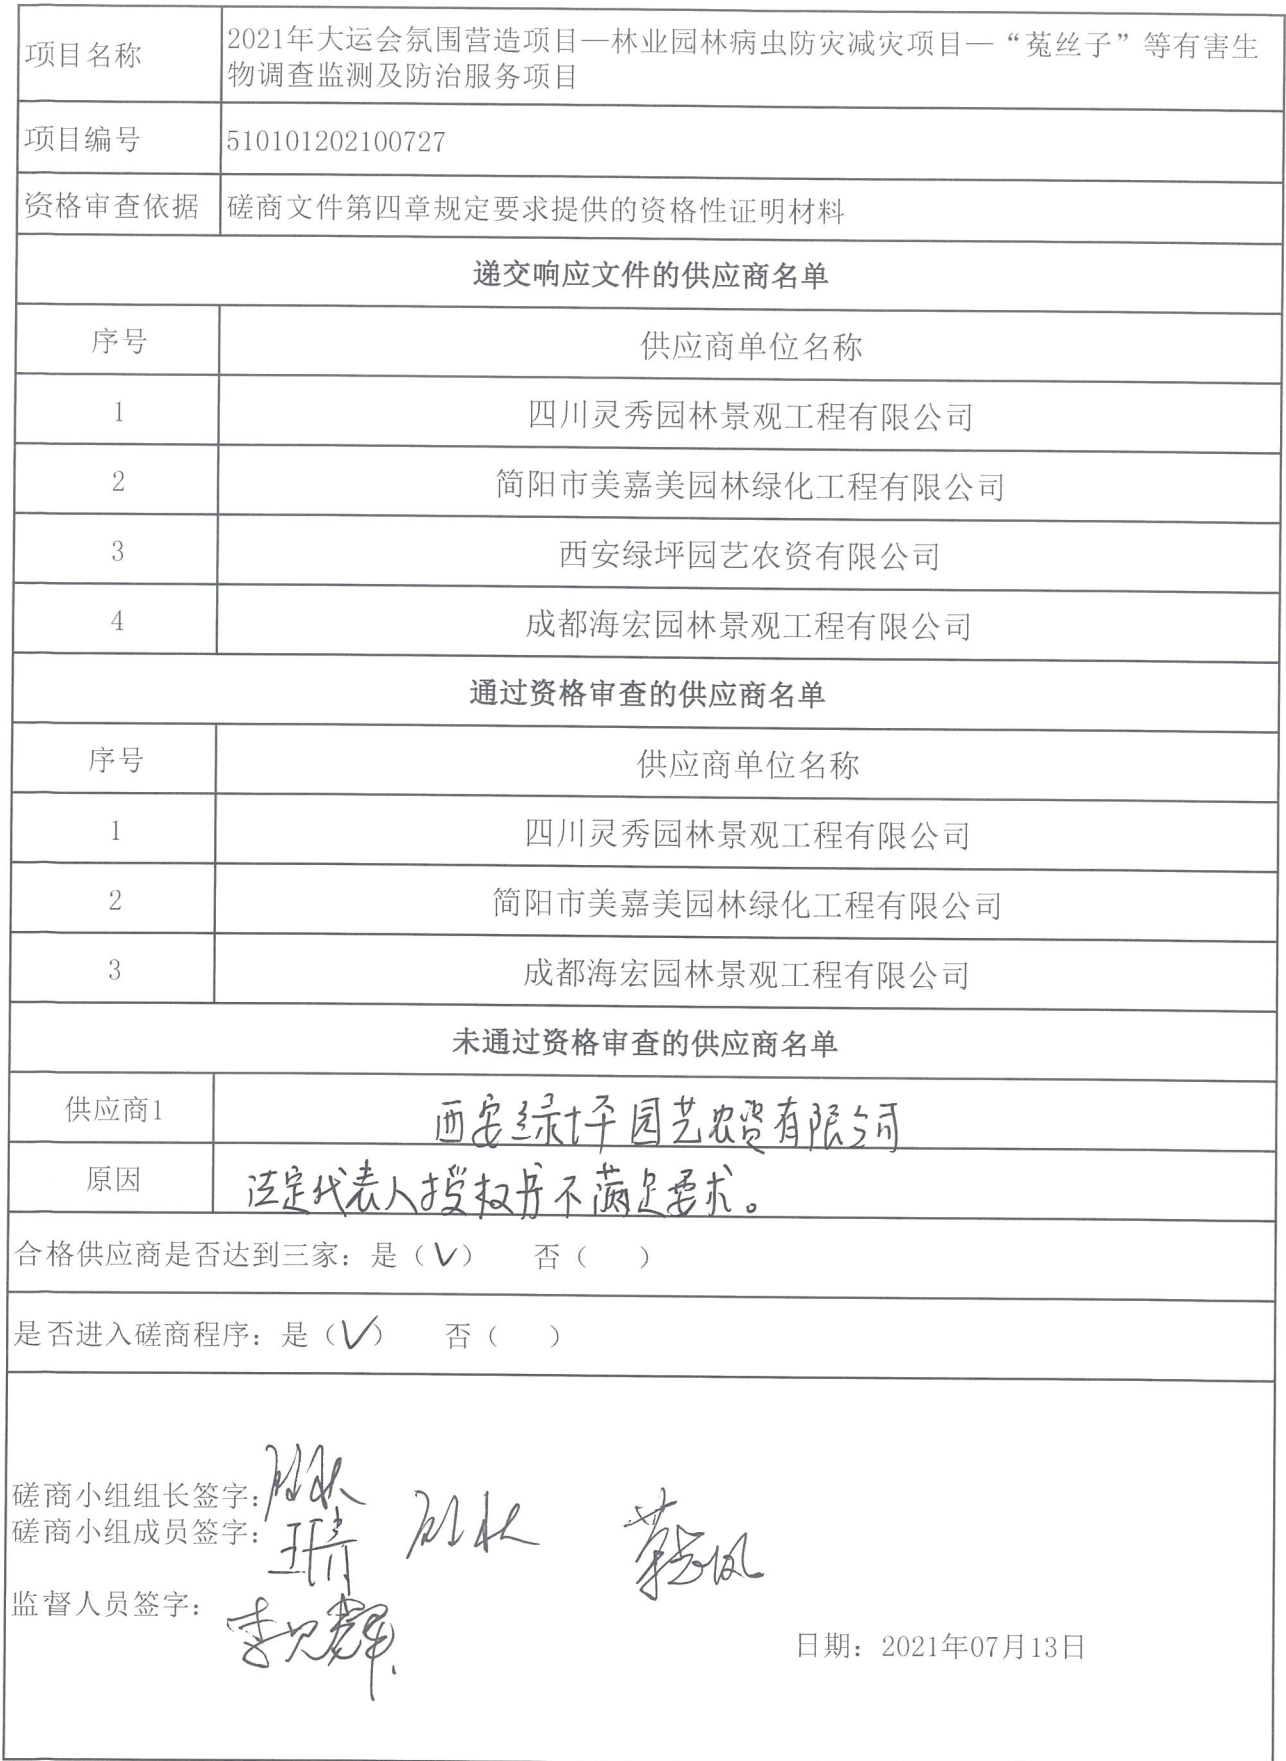 项目名称
2021年大运会氛围营造项目—林业园林病虫防灾减灾项目—“菟丝子”等有害生
物调查监测及防治服务项目
项目编号 510101202100727
资格审查依据 磋商文件第四章规定要求提供的资格性证明材料
递交响应文件的供应商名单
序号 供应商单位名称
1 四川灵秀园林景观工程有限公司
2 简阳市美嘉美园林绿化工程有限公司
3 西安绿坪园艺农资有限公司
4 成都海宏园林景观工程有限公司
通过资格审查的供应商名单
序号 供应商单位名称
1 四川灵秀园林景观工程有限公司
2 简阳市美嘉美园林绿化工程有限公司
3 成都海宏园林景观工程有限公司
未通过资格审查的供应商名单
供应商1 西安绿坪园艺农资有限公司
原因 法定代表人授权书不满足要求。
合格供应商是否达到三家：是（√） 否（ ）
是否进入磋商程序：是（√） 否（ ）
磋商小组组长签字：
磋商小组成员签字：
监督人员签字：
日期：2021年07月13日